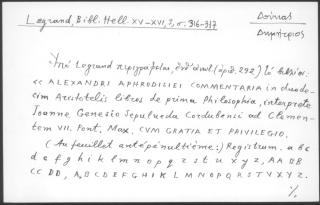 Legrand, Bibl. Hell. XV-XVI, 3, σ. 316-317
Δούκας
Δημήτριος
Ὑπὸ Legrand περιγράφεται, ἐνθ' ἀνωτ. (ἀριθ. 292) τὸ βιβλίον:
<< ALEXANDRI APHRODISIEI COMMENTARIA in duode-
cim Aristotelis libros de prima Philosophia, interprete
Joanne Genesio Sepulveda Cordubensi ad Clemen-
tem VII. Pont. Max. CVM GRATIA ET PRIVILEGIO.
(Au feuillet antépénultième:) Registrum. a b c
d e f g h i k l m n o p q r s t u x y z, AA BB
CC DD, A B C D E F G H I K L M N O P Q R S T V X Y Z.
./.